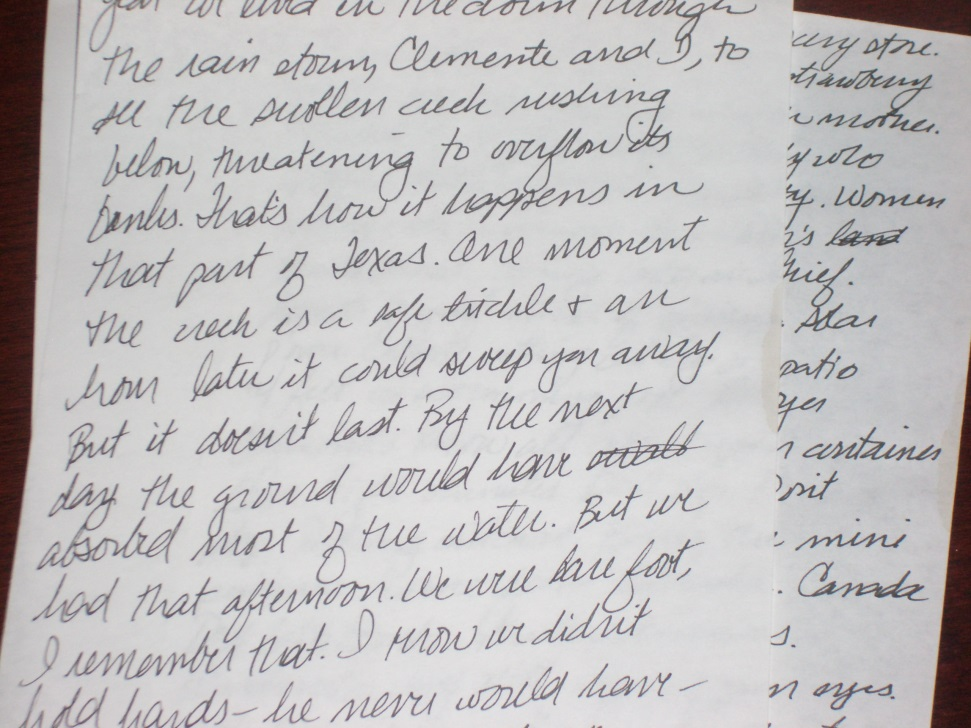 year we lived in the dorm through
the rain storm, Clemente and I, to
see the swollen creek rushing
below, threatening to overflow its
banks. That's how it happens in
that part of Texas. One moment
the creek is a safe trickle + an
hour later it could sweep you away.
But it doesn't last. By the next
day the ground would have
absorbed most of the water. But we
had that afternoon. We were bare foot,
I remember that. I know we didn't
hold hands – he never would have –
store.
strawberry
mother.
who
. Women
land
.
Star
patio
eyes
containes
Don't
mini
. Canada
s.
eyes.